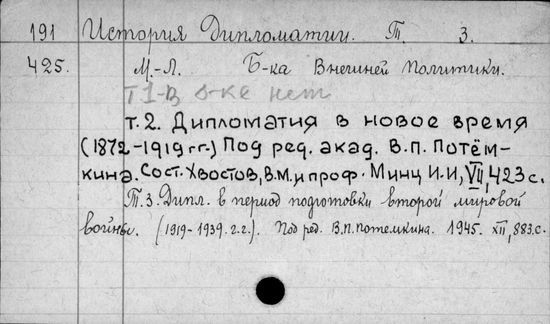 191 История Дипломатии. Т. 3.
425. М.-Л. Б-ка Внешней политики.
Т 1-в б-ке нет
Т. 2. Дипломатия в новое время
(1872-1919 гг.) Под ред. акад. В.П. Потём-
кина. Сост. Хвостов, В.М. и проф. Минц И.И, VII, 423 с.
Т. 3. Дипл. в период подготовки второй мировой
войны. (1919-1939. г.г.). Под ред. В.П. Потемкина. 1945. XII, 883. с.